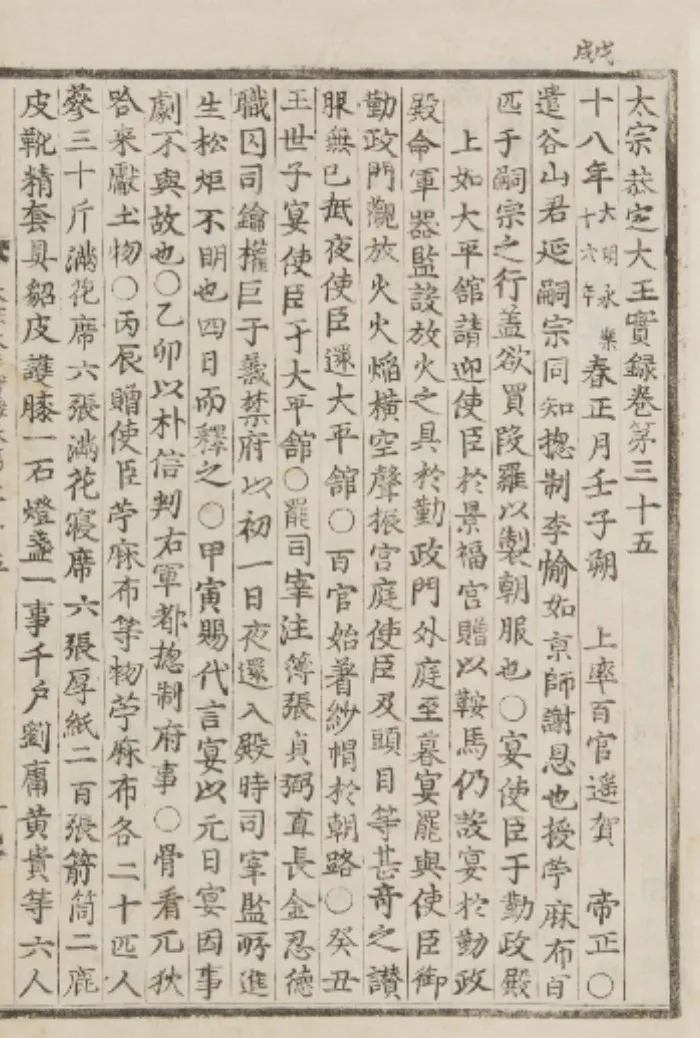 戊戌
太宗恭定大王實録卷第三十五
十八年大明永樂十六年春正月壬子朔 上率百官遥賀 帝正○
遣谷山君延嗣宗同知摠制李愉如京師謝恩也授苧麻布百
匹于嗣宗之行盖欲買段羅以製朝服也○宴使臣于勤政殿
上如大平館請迎使臣於景福宫贈以鞍馬仍設宴於勤政
殿命軍器監設放火之具於勤政門外庭至暮宴罷與使臣御
勤政門觀放火火焔横空聲振宫庭使臣及頭目等甚奇之讃
服無已抵夜使臣還大平館○百官始著紗帽於朝路○癸丑
王世子宴使臣于大平館○罷司宰注簿張貞弼直長金忍德
職囚司鑰權臣于義禁府以初一日夜還入殿時司宰監所進
生松炬不明也四日而釋之○甲寅賜代言宴以元日宴因事
劇不與故也○乙卯以朴信判右軍都摠制府事○骨看兀狄
哈来獻土物○丙辰贈使臣苧麻布等物苧麻布各二十匹人
蔘三十斤滿花席六張滿花寝席六張厚紙二百張箭筒二鹿
皮靴精套具貂皮護膝一石燈盞一事千户劉庸黄貴等六人